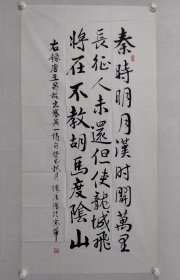 秦時明月漢時關萬里
長征人未還但使龍城飛
將在不教胡馬度陰山
右錄唐王昌齡出塞其一 秋月 於京華